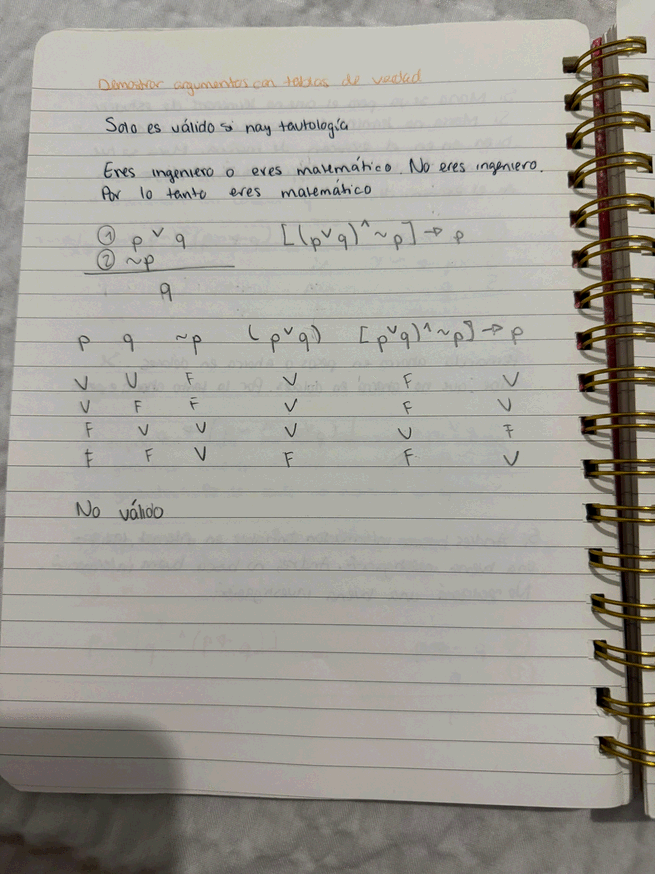 Demostrar argumentos con tablas de verdad
Solo es válido si hay tautología
Eres ingeniero o eres matemático. No eres ingeniero.
Por lo tanto eres matemático
① p ∨ q [(p ∨ q) ∧ ~p] → p
② ~p
q
p q ~p (p ∨ q) [p ∨ q) ∧ ~p] → p
V V F V F V
V F F V F V
F V V V V F
F F V F F V
No válido